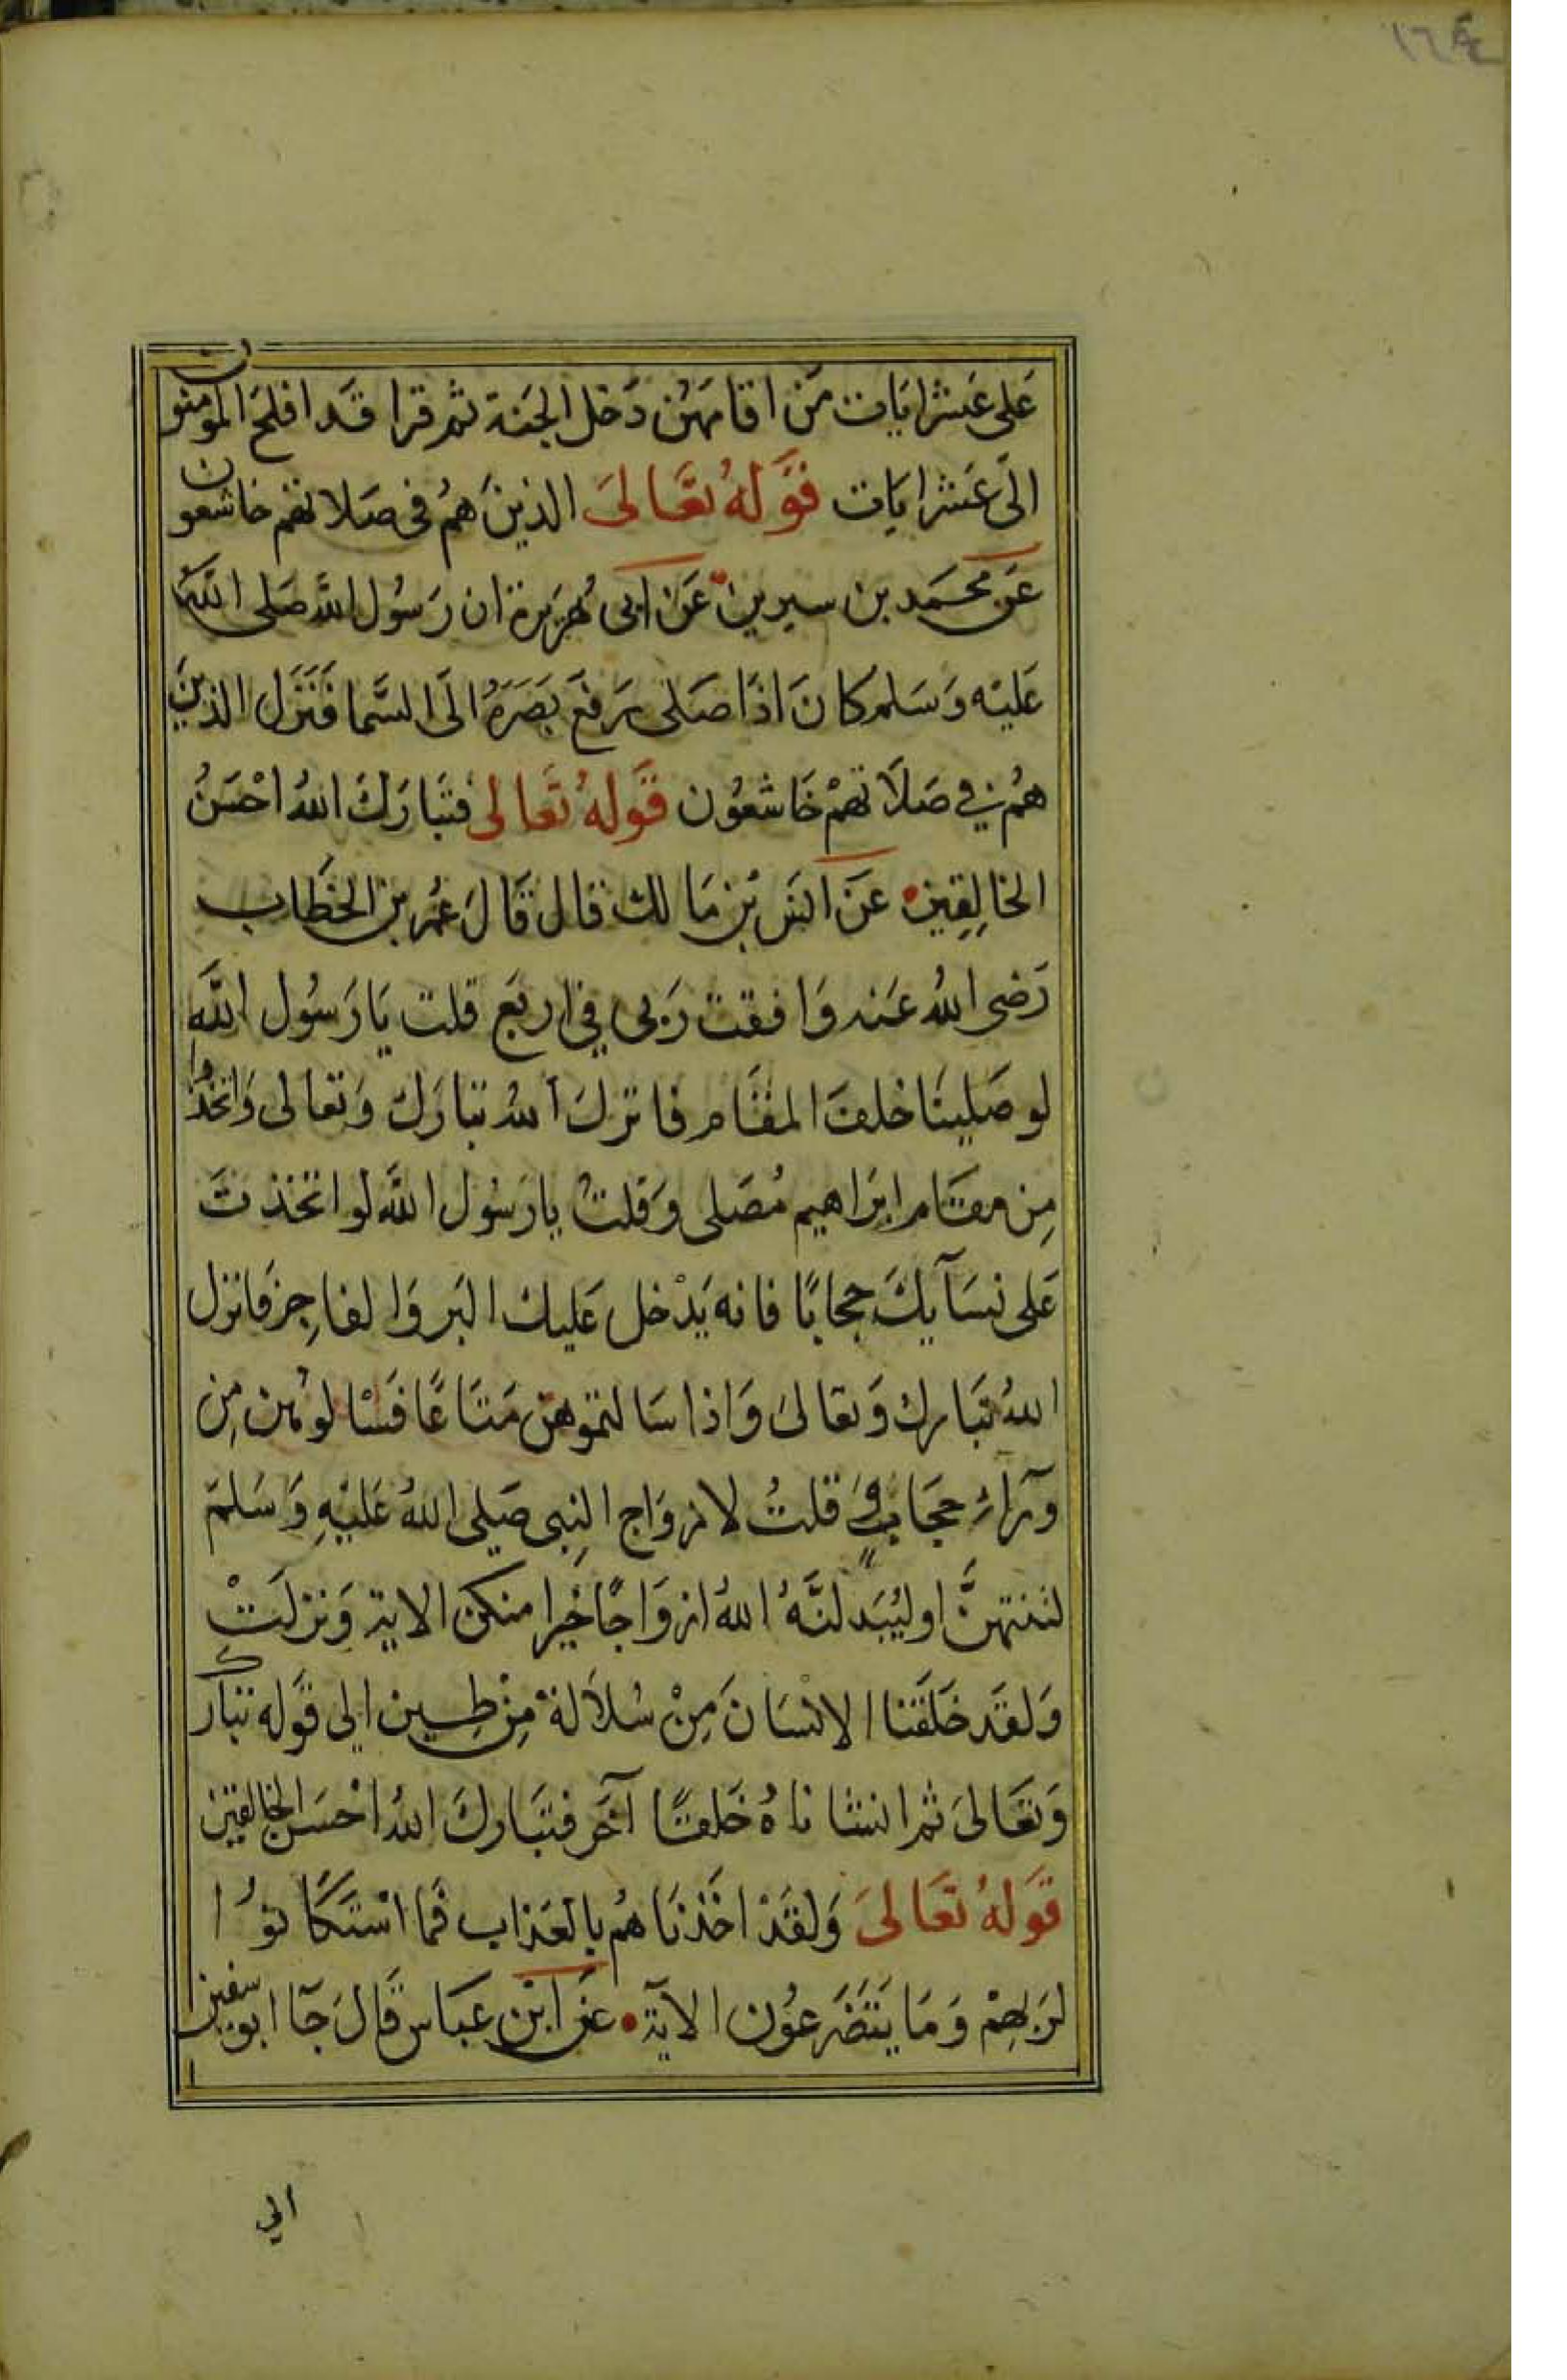 عَلى عَشر ايَات مَن اقامهُن دَخل الجَنة ثم قرا قَد افلحَ المومنون
الىَ عَشر ايَات قَولهُ تعَالىَ الذينَ همُ فى صَلاتهم خاشعون
عَن محمَد بن سيرين عَن ابى هُرَيرة ان رَسُول اللَّه صَلى اللَّه
عَليْه وَسَلم كانَ اذَا صَلى رَفعَ بَصَرَهُ الىَ السَّما فَنَزَل الذينَ
همُ في صَلاَتهمْ خَاشعُون قَولهُ تَعَالى فتبَارَكَ اللهُ احْسَنُ
الخالِقِين عَن انَس بْن مَالك قال قَالَ عُمر بن الخطَاب
رَضي اللهُ عَنه وَافقت رَبى في اربَع قلت يَا رَسُول اللَّهِ
لو صَلينَا خلف المقَام فانزلَ اللهُ تبَارَك وَتعَالى وَاتخذُوا
مِن مقَام ابرَاهيم مُصَلى وَقلتُ يا رَسُول اللَّه لو اتخذتَ
عَلى نسَآيكَ حجابًا فانه يَدْخل عَليك البَر وَالفاجِر فانزل
اللهُ تبَارك وَتعَالىَ وَاذا سَالتموهن مَتاعًا فَسْالوُهن مِن
ورَآء حجَاب وَقلتُ لازوَاج النِبى صَلى اللهُ عَليْهِ وَسَلمَ
لتنتهنَّ او ليُبَدلنَّهُ اللهُ ازوَاجًا خَيرا منكن الاية وَنزلَتْ
وَلقَد خَلَقنا الانْسَانَ مِنْ سُلاَلة مِنْ طِين الي قَوله تبارك
وَتعَالىَ ثم انشاناهُ خَلقًا آخَر فتبَاركَ اللهُ احْسَن الخالقين
قَولهُ تعَالىَ وَلقَدْ اخَذنَاهُم بالعَذاب فمَا اسْتَكَانوُا
لرَبهِمْ وَمَا يَتَضَرعوُن الآية عَن ابْن عَباس قَالَ جَآ ابو سفين
الي